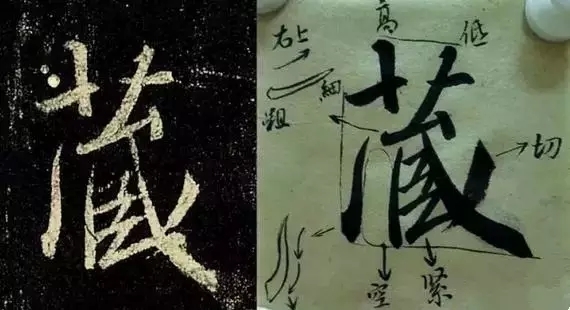 藏
高
低
右上
細
粗
藏
切
空
紧